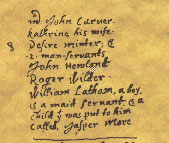 mr John Carver.
kathrine his wife.
Desire minter; &
8
·2· man-servants
John Howland
Roger Wilder.
William Latham, a boy.
& a maid servant & a
child yt was put to him
called, Jasper More